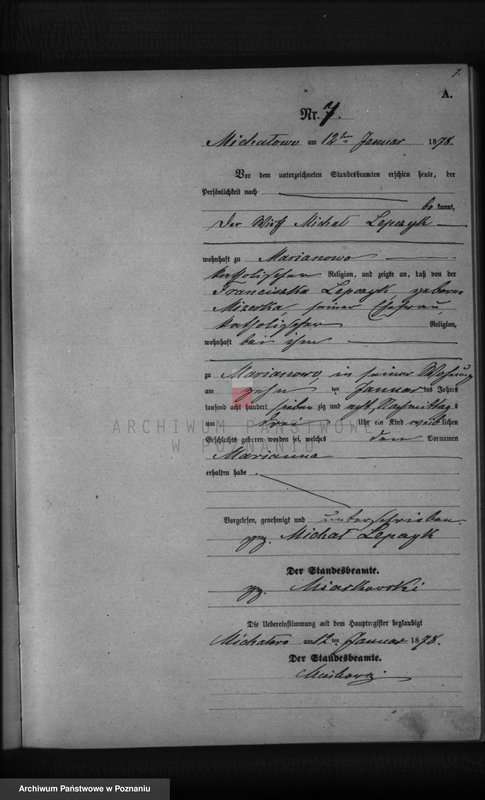 7.
A.
Nr. 7.
Michałowo am 12ten Januar 1878.
Vor dem unterzeichneten Standesbeamten erschien heute, der
Persönlichkeit nach
be kannt,
der Wirth Michał Lepczyk
wohnhaft zu Marianowo
katholischer Religion, und zeigte an, daß von der
Franciszka Lepczyk geborne
Mizerka, seiner Ehefrau,
katholischer Religion,
wohnhaft bei ihm
zu Marianowo, in seiner Wohnung
am zehn ten Januar des Jahres
tausend acht hundert sieben zig und acht, Nachmittag s
um drei Uhr ein Kind weib lichen
ARCHIWUM PAŃSTWOWE
W POZNANIU
Geschlechts geboren worden sei, welches den Vornamen
Marianna
erhalten habe.
Vorgelesen, genehmigt und unterschrieben
gez. Michał Lepczyk
Der Standesbeamte.
gez. Miaskowski
Die Uebereinstimmung mit dem Hauptregister beglaubigt
Michałowo am 12 ten Januar 1878.
Der Standesbeamte.
Archiwum Państwowe w Poznaniu